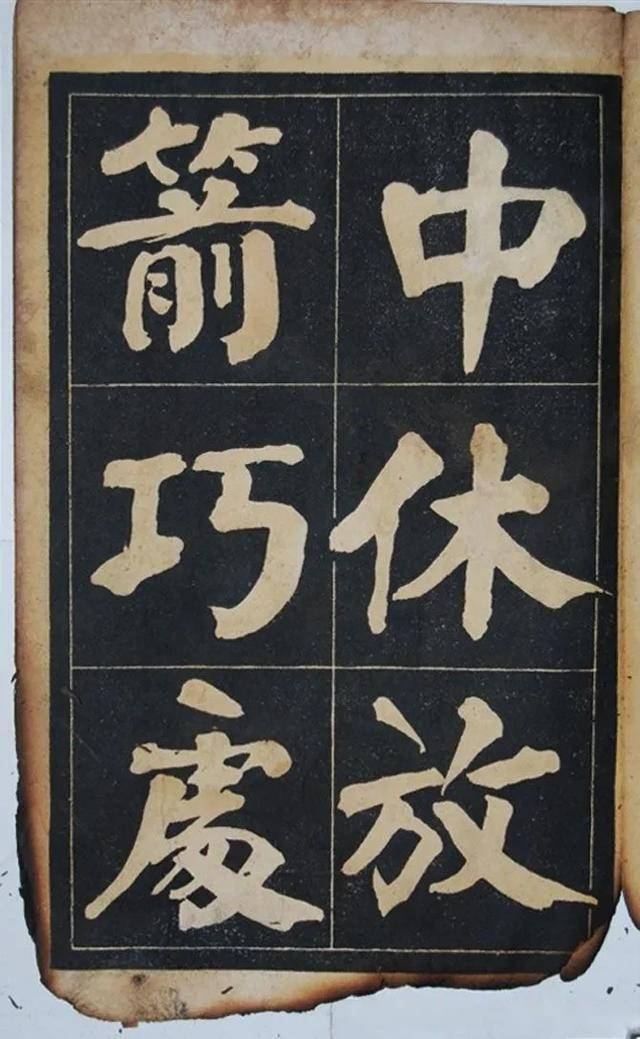 中休放
箭巧處